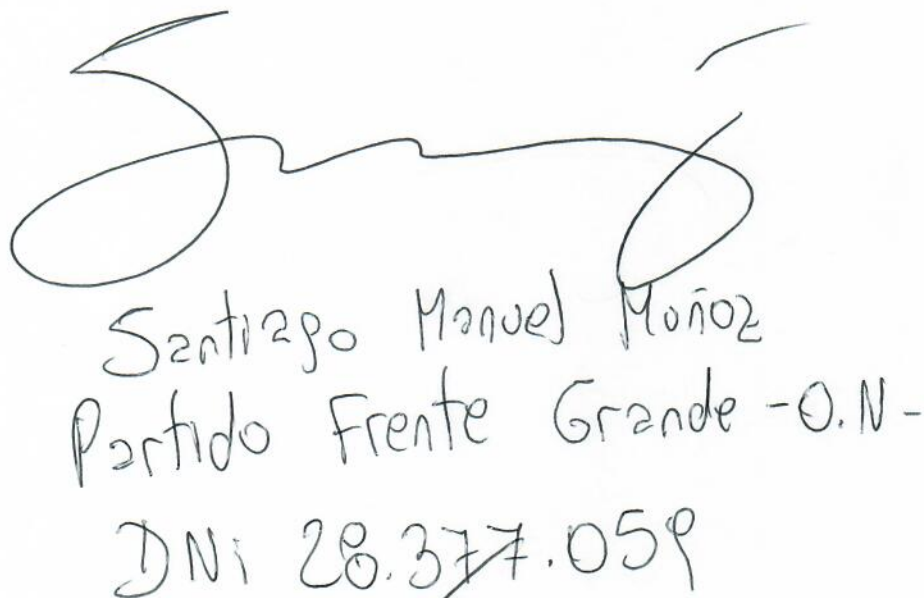 Santiago Manuel Muñoz
Partido Frente Grande -O.N-
DNi 28.377.059